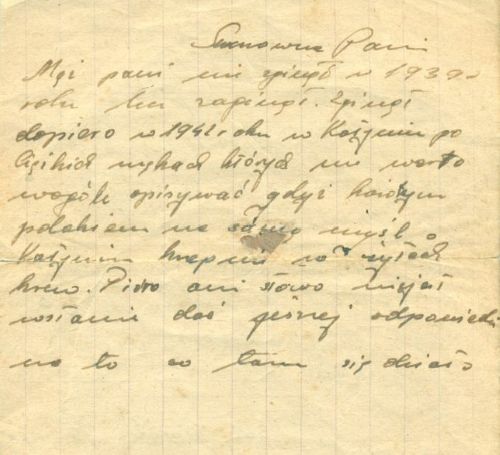 Szanowna Pani
Mąż pani nie zginął w 1939
roku lecz zaginął. Zginął
dopiero w 1942 roku w Katyniu po
ciężkich mękach których nie warto
wogóle opisywać gdyż każdym
polakiem na samą myśl o
Katyniu krzepnie w żyłach
krew. Pióro ani słowo
dać odpowiedzi
na to co tam się działo